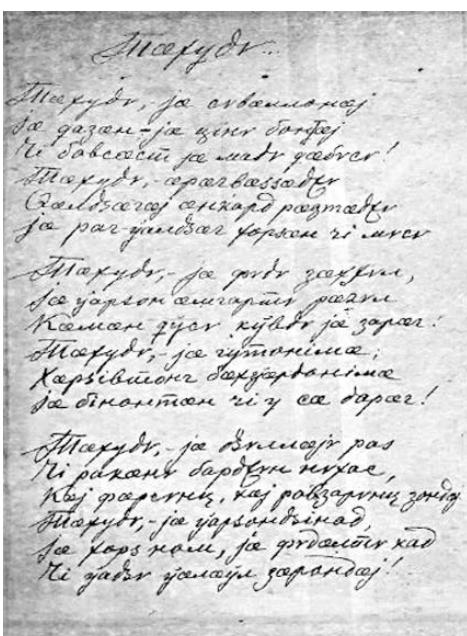 Тæхуды...
Тæхуды, jæ сывæллонæj
Jæ qазæн – jæ ціны бонтæj
Чі бавсæст jæ мады qæбысы!
Тæхуды, – æрагвæззæджы
æнкард рæстæджы
Jæ раг-уалдзæг хорзæн чі мысы

Тæхуды, – jæ фыды зæххыл,
Jæ уарзон æмгартты рæгыл
Кæмæн qуысы кувды jæ зарæг!
Тæхуды, – jæ гутонімæ,
Хæрзівтонг бæхуардонімæ
Jæ бінонтæн чі у сæ дарæг!

Тæхуды, – jæ дзыллæjы раз
Чі ракæны барджын ныхас,
Кæj фæрсынц, кæj равзарынц зондæj
Тæхуды, – jæ уарзондзінад,
Jæ хорз ном, jæ фыдæлты кад
Чі уадзы уæлæуыл зæрондæj!